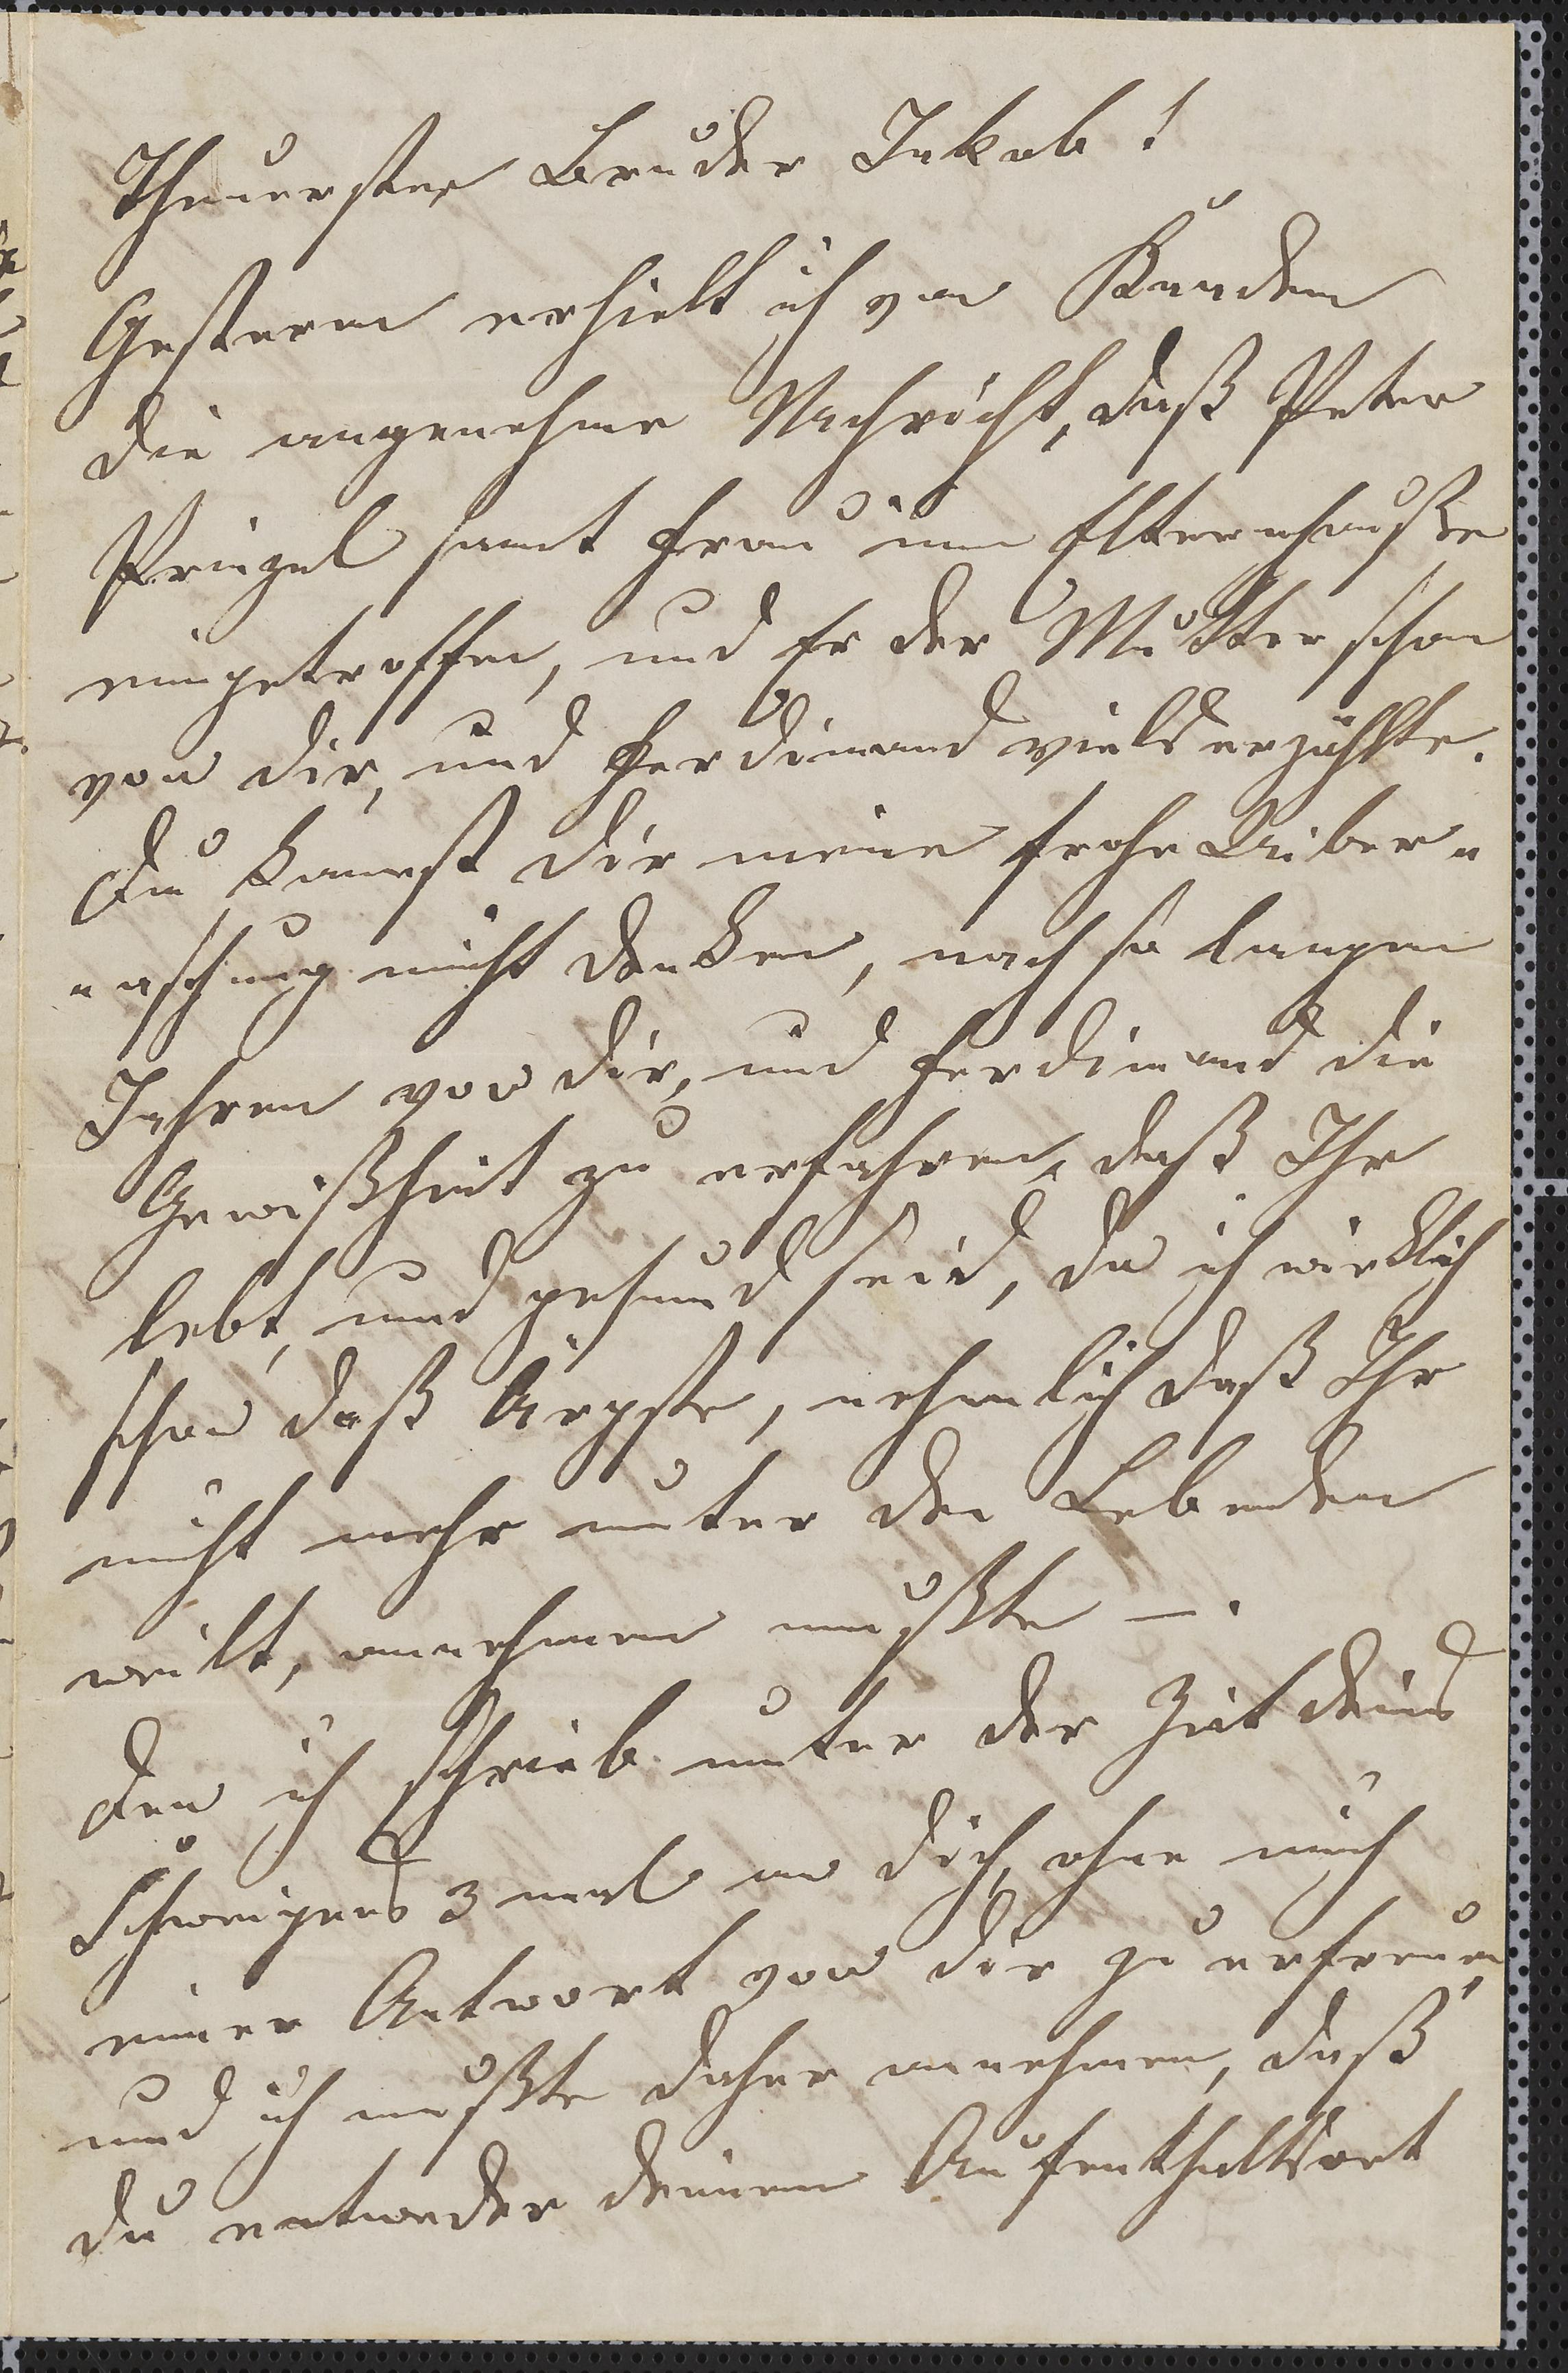 Theuerster Bruder Jakob!
Gestern erhielt ich von Kunden
die angenehme Nachricht, daß Peter
Prinzel samt Frau im Elternhauße
eingetroffen, und Er der Mutter schon
von dir, und Ferdinand viels erzählte.
Du kanst dir meine frohe Uiber"
"aschung nicht denken, nach so langen
Jahren von dir, und Ferdinand die
Gewißheit zu erfahren, daß Ihr
lebt, und gesund seid, da ich wirklich
schon daß Ärgste, nehmlich daß Ihr
nicht mehr unter den Lebenden
weilt, annehmen mußte —.
Den ich schrieb unter der Zeit deins
Schweigens 3 mal an dich, ohne mich
einer Antwort von dir zu erfreuen,
und ich mußte daher annehmen, daß
du entweder deinen Aufenthaltsort